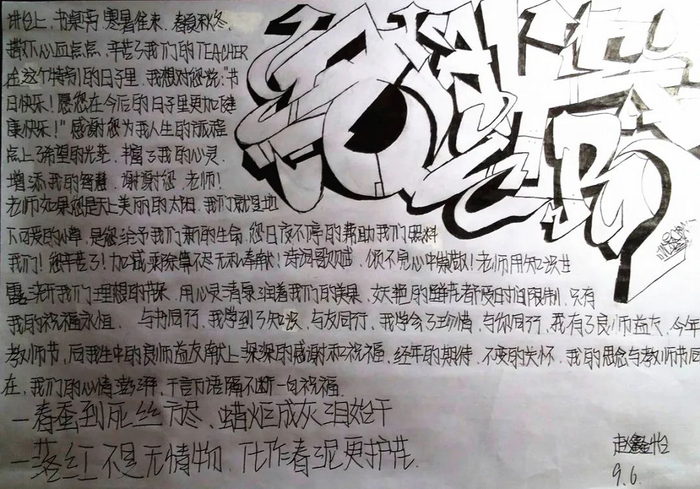 讲台上,书桌旁,寒暑催来,春夏秋冬,
撒下心血点点,辛苦了我们的TEACHER
在这个特别的日子里,我想对您说:"节
日快乐!愿您在今后的日子里更加健
康快乐!"感谢您为我人生的旅程
点上了希望的光芒,丰富了我的心灵.
增添我的智慧,谢谢您,老师!
老师如果您是天上美丽的太阳,我们就是地
下可爱的小草,是您给予我们新的生命,您日夜不停的帮助我们照料
我们!您辛苦了!加减乘除算不尽无私奉献!诗词歌赋颂,颂不完心中崇敬!老师用知识生
露,染开我们理想的花朵,用心灵清泉润着我们的美果,妖艳的鲜花都受时间限制,只有
我的祝福永恒.与书同行,我学到了知识,与友同行,我学会了珍惜,与你同行,我有了良师益友,今年
教师节,向我生中的良师益友献上深深的感谢和祝福,经年的期待,不变的关怀,我的思念与教师节同
在,我们的心情澎湃,千言万语隔不断一句祝福
一春蚕到死丝方尽,蜡炬成灰泪始干
一落红不是无情物,化作春泥更护花.
赵鑫怡
9.6.